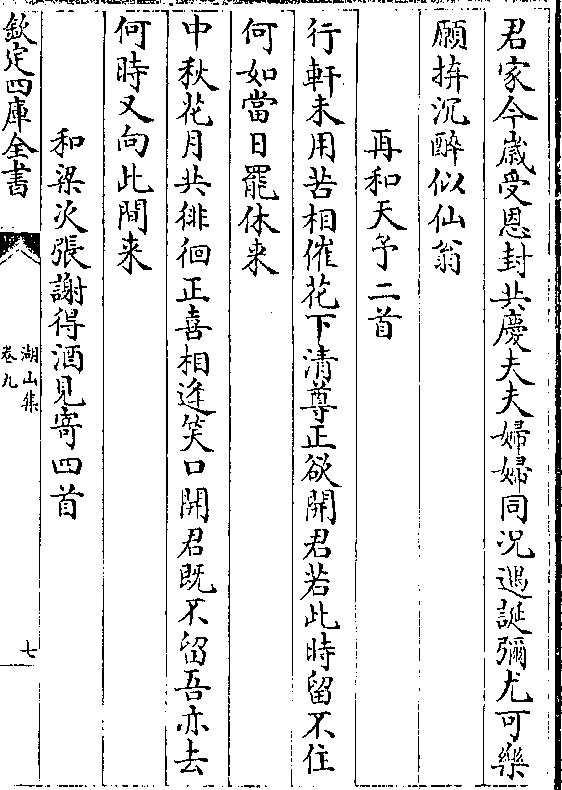 君家今歳受恩封共慶夫夫婦婦同況遇誕彌尤可樂
願拚沉醉似仙翁
再和天予二首
行軒未用苦相催花下清尊正欲開君若此時留不住
何如當日罷休来
中秋花月共徘徊正喜相逢笑口開君既不留吾亦去
何時又向此間来
和梁次張謝得酒見寄四首
欽定四庫全書
湖山集
卷九
七